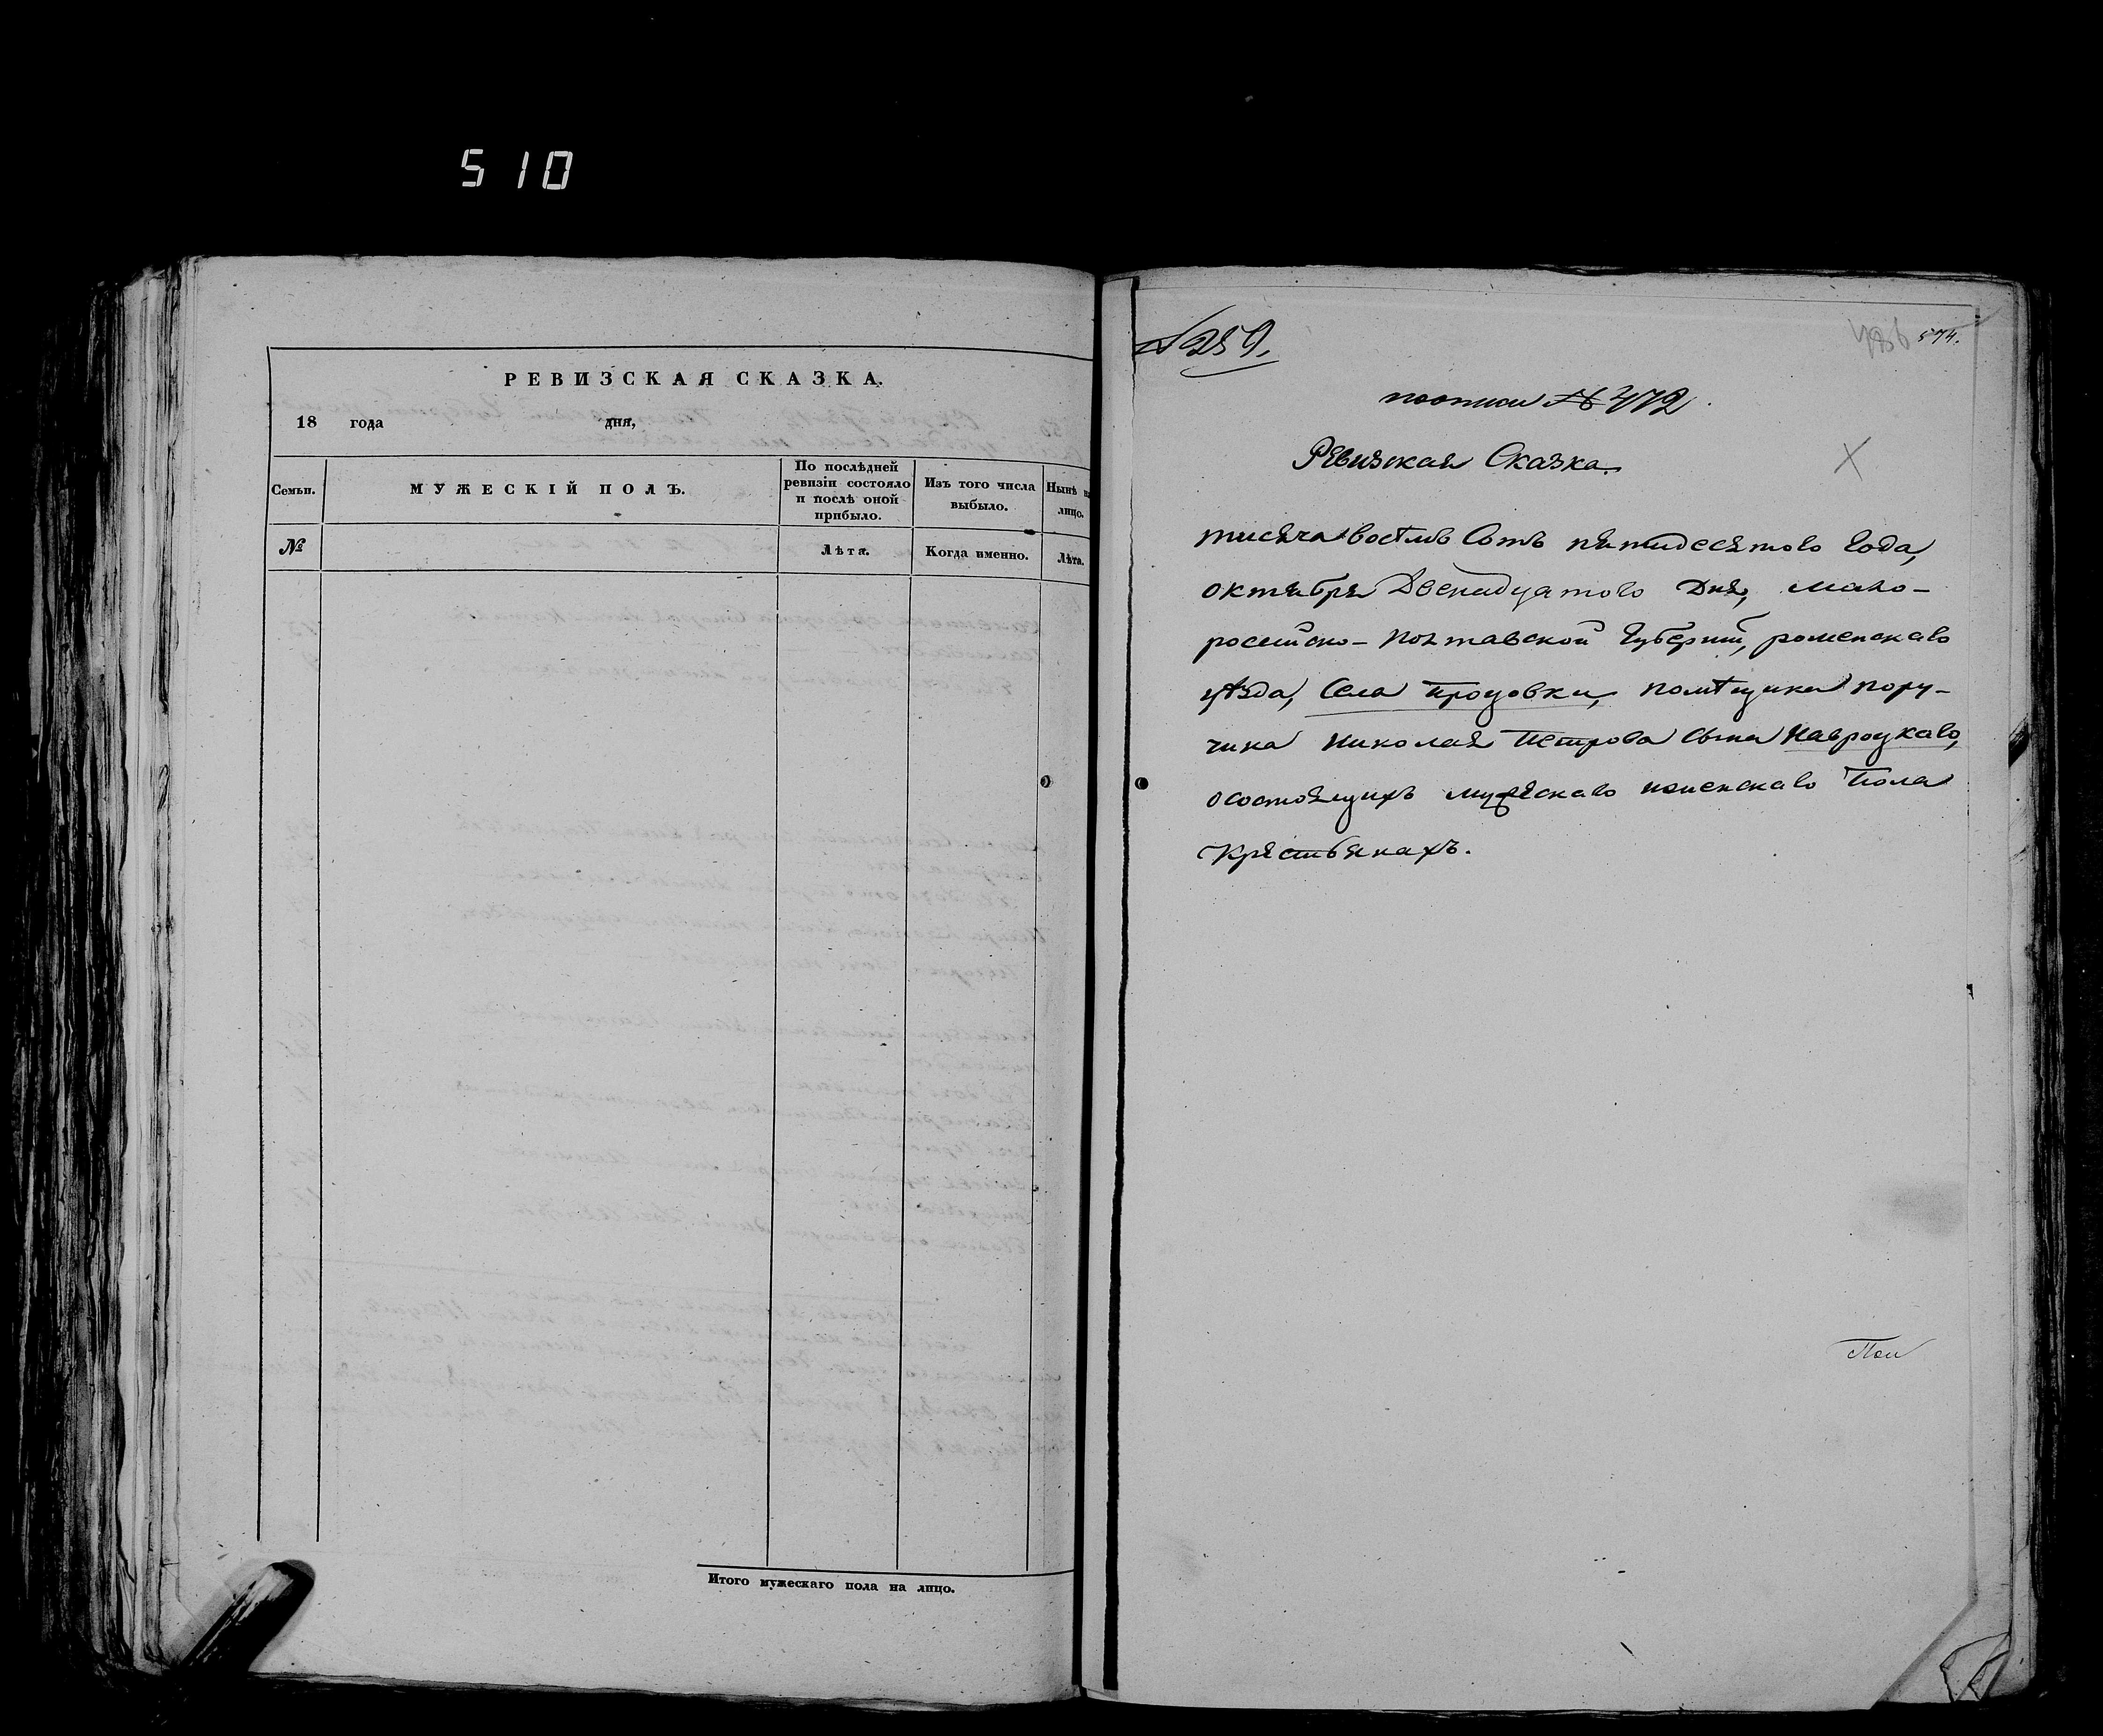 510
РЕВИЗСКАЯ СКАЗКА.
18 года дня,
Семьи.
МУЖЕСКІЙ ПОЛЪ.
По послѣдней ревизіи состояло и послѣ оной прибыло.
Изъ того числа выбыло.
Нынѣ на лицо.
№
Лѣта.
Когда именно.
Лѣта.
Итого мужескаго пола на лицо.
№ 259.
574.
поописи № 472.
Ревизская Сказка.
тисяча восемь Сотъ пятидесятого Года,
октября Двенадцатого Дня, мало-
росийско-Полтавской Губернии, роменскаго
уѣзда, Села Процовки, помѣщика пору-
чика Николая Петрова Сына Навроцкаго,
осостоящихъ мужескаго иженскаго Пола
Крестьянахъ.